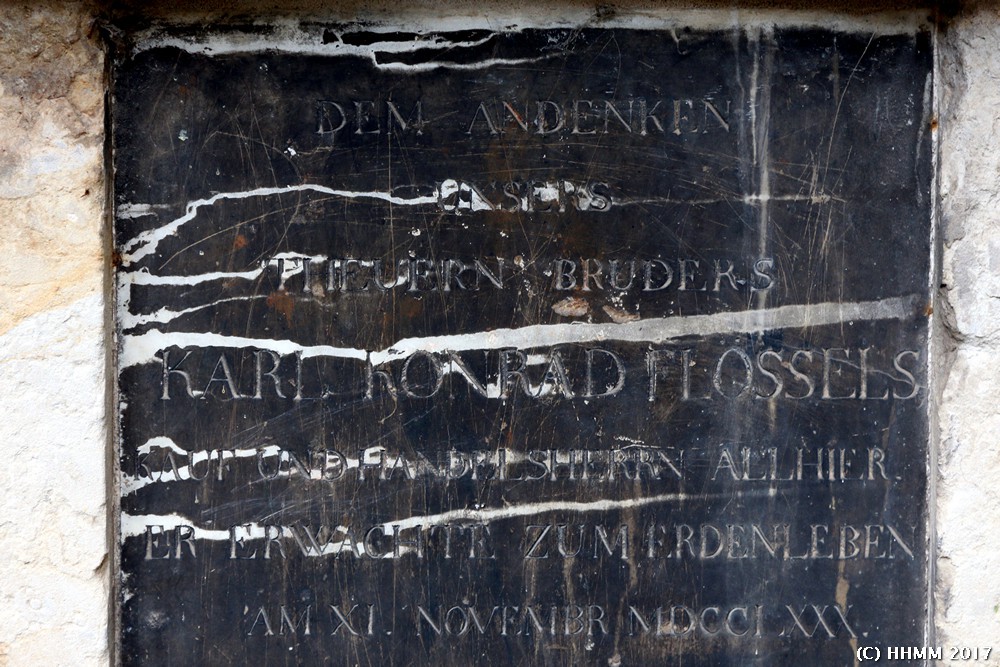 DEM ANDENKEN
UNSERS
THEUERN BRUDERS
KARL KONRAD FLOSSELS
KAUF UND HANDELSHERRN ALLHIER.
ER ERWACHTE ZUM ERDENLEBEN
AM XI. NOVEMBR MDCCLXXX.
(C) HHMM 2017